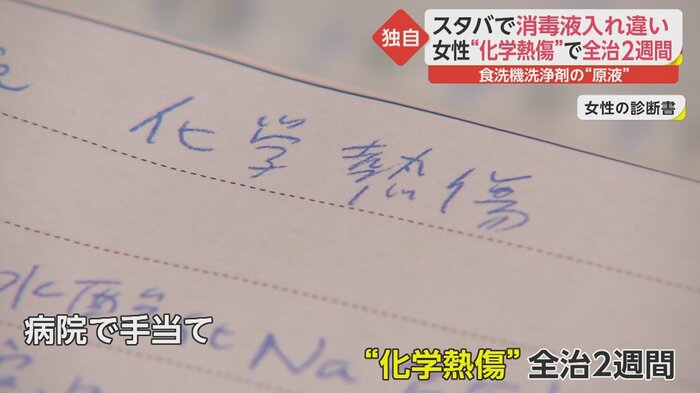 独自
スタバで消毒液入れ違い
女性“化学熱傷”で全治2週間
食洗機洗浄剤の“原液”
女性の診断書
化学熱傷
Na
病院で手当て
“化学熱傷” 全治2週間